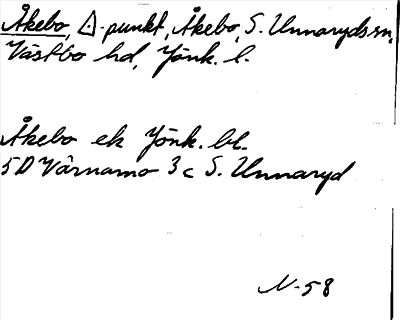 Åkebo, △-punkt, Åkebo, S. Unnaryds sn,
Västbo hd, Jönk. l.
Åkebo ek Jönk. bl.
5D Värnamo 3c S. Unnaryd
N-58